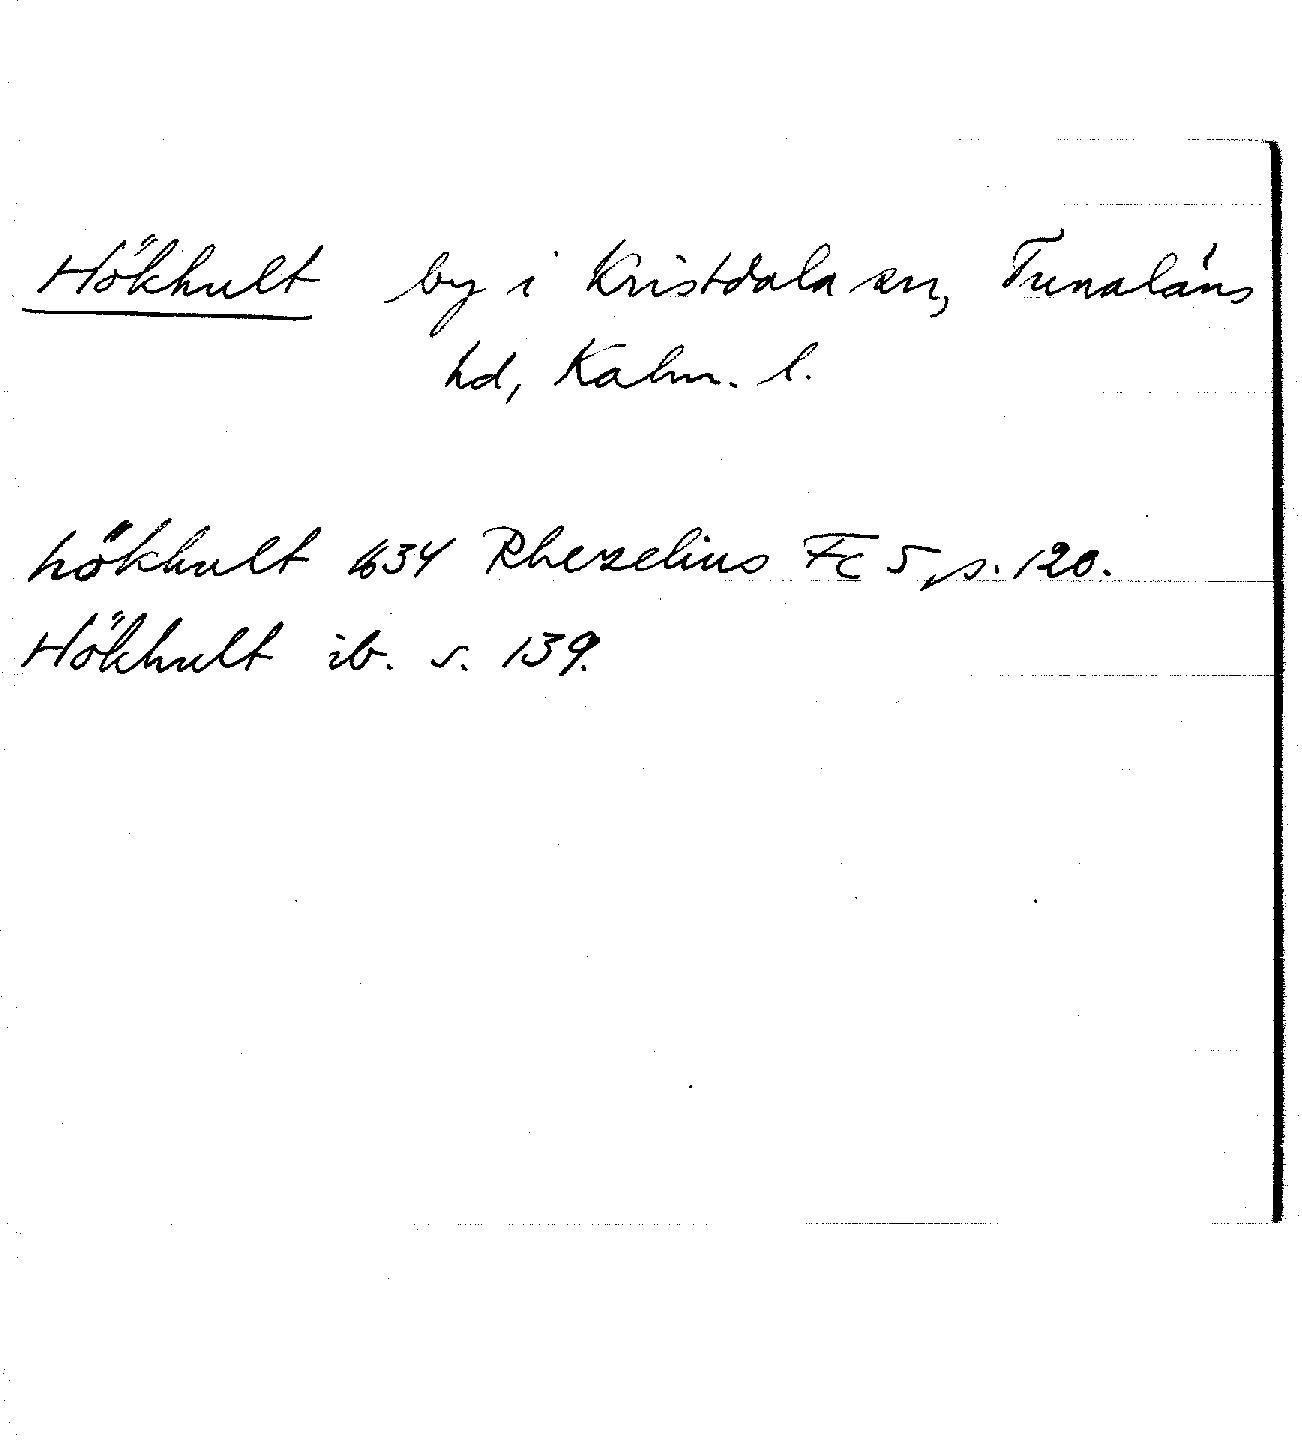 Hökhult by i Kristdala sn, Tunaläns
hd, Kalm. l.
hökhult 1634 Rhezelius Fc 5, s. 120.
Hökhult ib. s. 139.